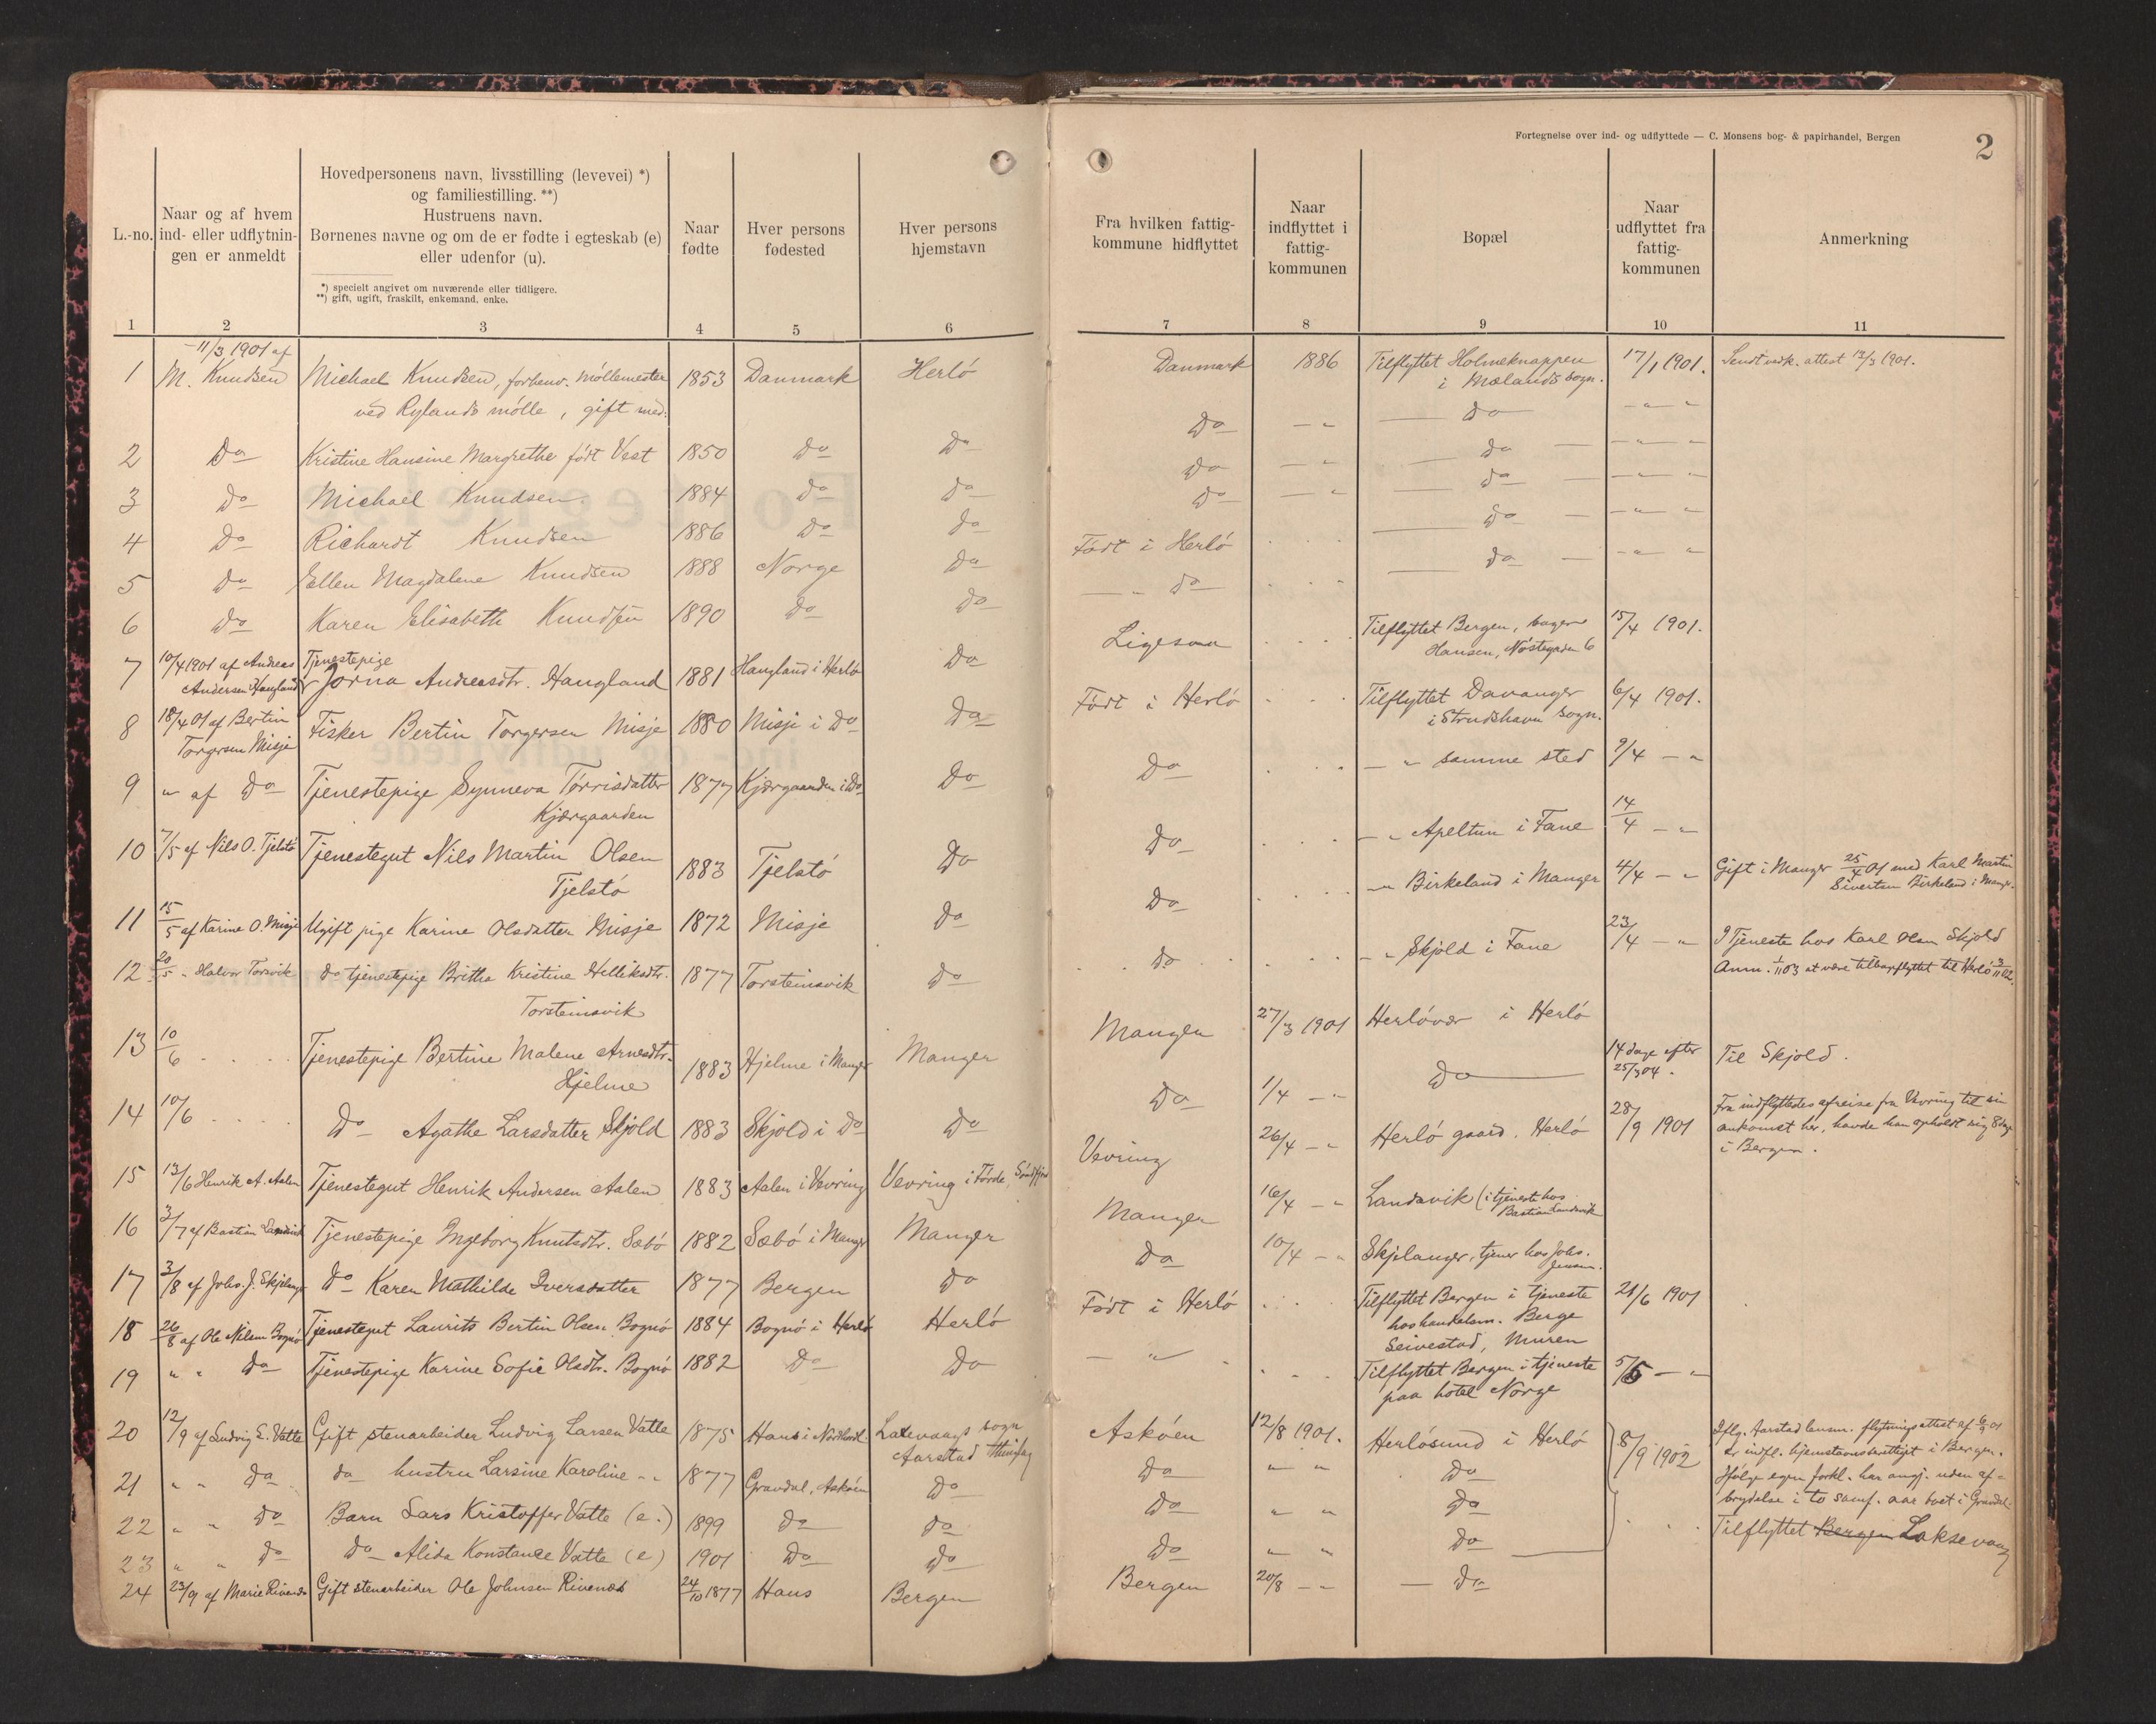 Fortegnelse over ind- og udflyttede — C. Monsens bog- & papirhandel, Bergen
2
L.-no.
Naar og af hvem
ind- eller udflytnin-
gen er anmeldt
Hovedpersonens navn, livsstilling (levevei) *)
og familiestilling. **)
Hustruens navn.
Børnenes navne og om de er fødte i egteskab (e)
eller udenfor (u).
*) specielt angivet om nuværende eller tidligere.
**) gift, ugift, fraskilt, enkemand, enke.
Naar
fødte
Hver persons
fødested
Hver persons
hjemstavn
Fra hvilken fattig-
kommune hidflyttet
Naar
indflyttet i
fattig-
kommunen
Bopæl
Naar
udflyttet fra
fattig-
kommunen
Anmerkning
1 2 3 4 5 6 7 8 9 10 11
11/3 1901 af
1 M. Knudsen Michael Knudsen, forhenv. móllemester 1853 Danmark Herló Danmark 1886 Tilflyttet Holmeknappen 17/1 1901. Sendt vedk. attest 12/3 1901.
ved Rylands mólle, gift med: i Mælands sogn.
2 Do Kristine Hansine Margrethe fódt Vest 1850 Do Do Do — " — do — — " "
3 Do Michael Knudsen. 1884 Do Do Do — " — do — — " —
4 Do Richardt Knudsen 1886 Do Do Do — " — do — — " —
5 Do Ellen Magdalene Knudsen 1888 Norge Do Fódt i Herló . . . — do — — " "
6 Do Karen Elisabeth Knudsen 1890 Do Do — " do . . . — do — — " "
7 10/4 1901 af Andreas Tjenestepige
Andersen Haugland Jorna Andreasdtr. Haugland 1881 Haugland i Herló Do Ligesaa . . . . Tilflyttet Bergen, bager 15/4 1901.
Hansen, Nóstegaden 6
8 18/4 01 af Bertin
Torgersen Misje Fisker Bertin Torgersen Misje 1880 Misje i Do Do Fódt i Herló . . . Tilflyttet Davanger 6/4 1901.
i Strudshavn sogn.
9 " af Do Tjenestepige Synneva Tórrisdatter 1877 Kjærgaarden i Do Do Do . . . — " samme sted 9/4 — "
Kjærgaarden
10 7/5 af Nils O. Tjelstó Tjenestegut Nils Martin Olsen 1883 Tjelstó Do Do . . . — " Apeltun i Fane 14/4 — "
Tjelstó
11 15/5 af Karine O. Misje Ugift pige Karine Olsdatter Misje 1872 Misje Do Do . . . — " Birkeland i Manger 4/4 — " Gift i Manger 25/4 01 med Karl Martin
Sivertsen Birkeland i Mangr.
12 20/5 " Halvor Torsvik do tjenestepige Britha Kristine Helliksdtr. 1877 Torsteinsvik Do . . do . . . — " Skjold i Fane 23/4 — " I Tjeneste hos Karl Olsen Skjold
Torsteinsvik Anm. 1/11 03 at være tilbageflyttet til Herló 3/11 02.
13 10/6 . . . . Tjenestepige Bertine Malene Arnesdtr. 1883 Hjelme i Manger Manger Manger 27/3 1901 Herlóvær i Herló
Hjelme
14 10/6 . . . . Do Agathe Larsdatter Skjold 1883 Skjold i Do Do Do 1/4 — " Do — 14 dage efter
25/3 04. Til Skjold.
15 13/6 Henrik A. Aalen Tjenestegut Henrik Andersen Aalen 1883 Aalen i Vevring Vevring i Fórde, Vevring 26/4 — " Herló gaard. Herló 28/9 1901 Fra indflyttedes afreise fra Vevring til sin
ankomst her, havde han opholdt sig 8 dage
i Bergen.
16 3/7 af Bastian Landsvik Tjenestepige Ingeborg Knutsdtr. Sæbó 1882 Sæbó i Manger Manger Manger 16/4 — " Landsvik (i tjeneste hos
Bastian Landsvik
17 3/8 af Johs. J. Skjelanger do Karen Mathilde Iversdatter 1877 Bergen Do Do 10/4 — " Skjelanger, tjener hos Johs.
Jensen.
18 26/8 af Ole Nilsen Bognó Tjenestegut Laurits Bertin Olsen Bognó 1884 Bognó i Herló Herló Fódt i Herló . . . Tilflyttet Bergen i tjeneste 21/6 1901
hos handelsm. Berge
Seivestad, Muren
19 " " Do Tjenestepige Karine Sofie Olsdtr. Bognó 1882 Do Do — " . . . . Tilflyttet Bergen i tjeneste 5/5 — "
paa hotel Norge
20 12/9 af Ludvig L. Vatle Gift stenarbeider Ludvig Larsen Vatle 1875 Haus i Nordhordl. Laxevaags sogn Askóen 12/8 1901. Herlósund i Herló 8/9 1902 Iflg. Aarstad lensm. flytningsattest af 6/9 01
Aarstad thinglag er indfl. hjemstavnsberettiget i Bergen.
21 " " Do do hustru Larsine Karoline " " 1877 Gravdal, Askóen Do Do " " Do Ifólge egen forkl. har angj. uden af-
brydelse i to samf. aar boet i Gravdal.
22 " " Do Barn Lars Kristoffer Vatle (e.) 1899 do do Do " " Do
23 " " Do Do Alida Konstance Vatle (e) 1901 Do Do Do " " Do — Tilflyttet Bergen Laksevaag
24 23/9 af Marie Rivenæs Gift stenarbeider Ole Johnsen Rivenæs 24/10 1877 Haus Bergen Bergen 20/8 — " — Do